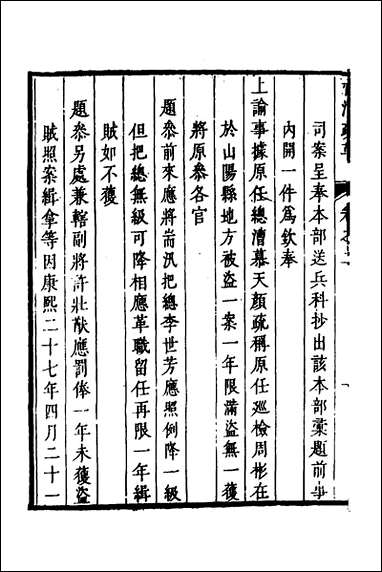 司案呈奉本部送兵科抄出該本部彙題前事
內開一件為欽奉
上諭事據原任總漕慕天顏疏稱原任巡檢周彬在
於山陽縣地方被盜一案一年限滿盜無一獲
將原參各官
題參前來應將耑汛把總李世芳應照例降一級
但把總無級可降相應革職留任再限一年緝
賊如不獲
題參另處兼轄副將許壯猷應罰俸一年未獲盜
賊照案緝拿等因康熙二十七年四月二十一